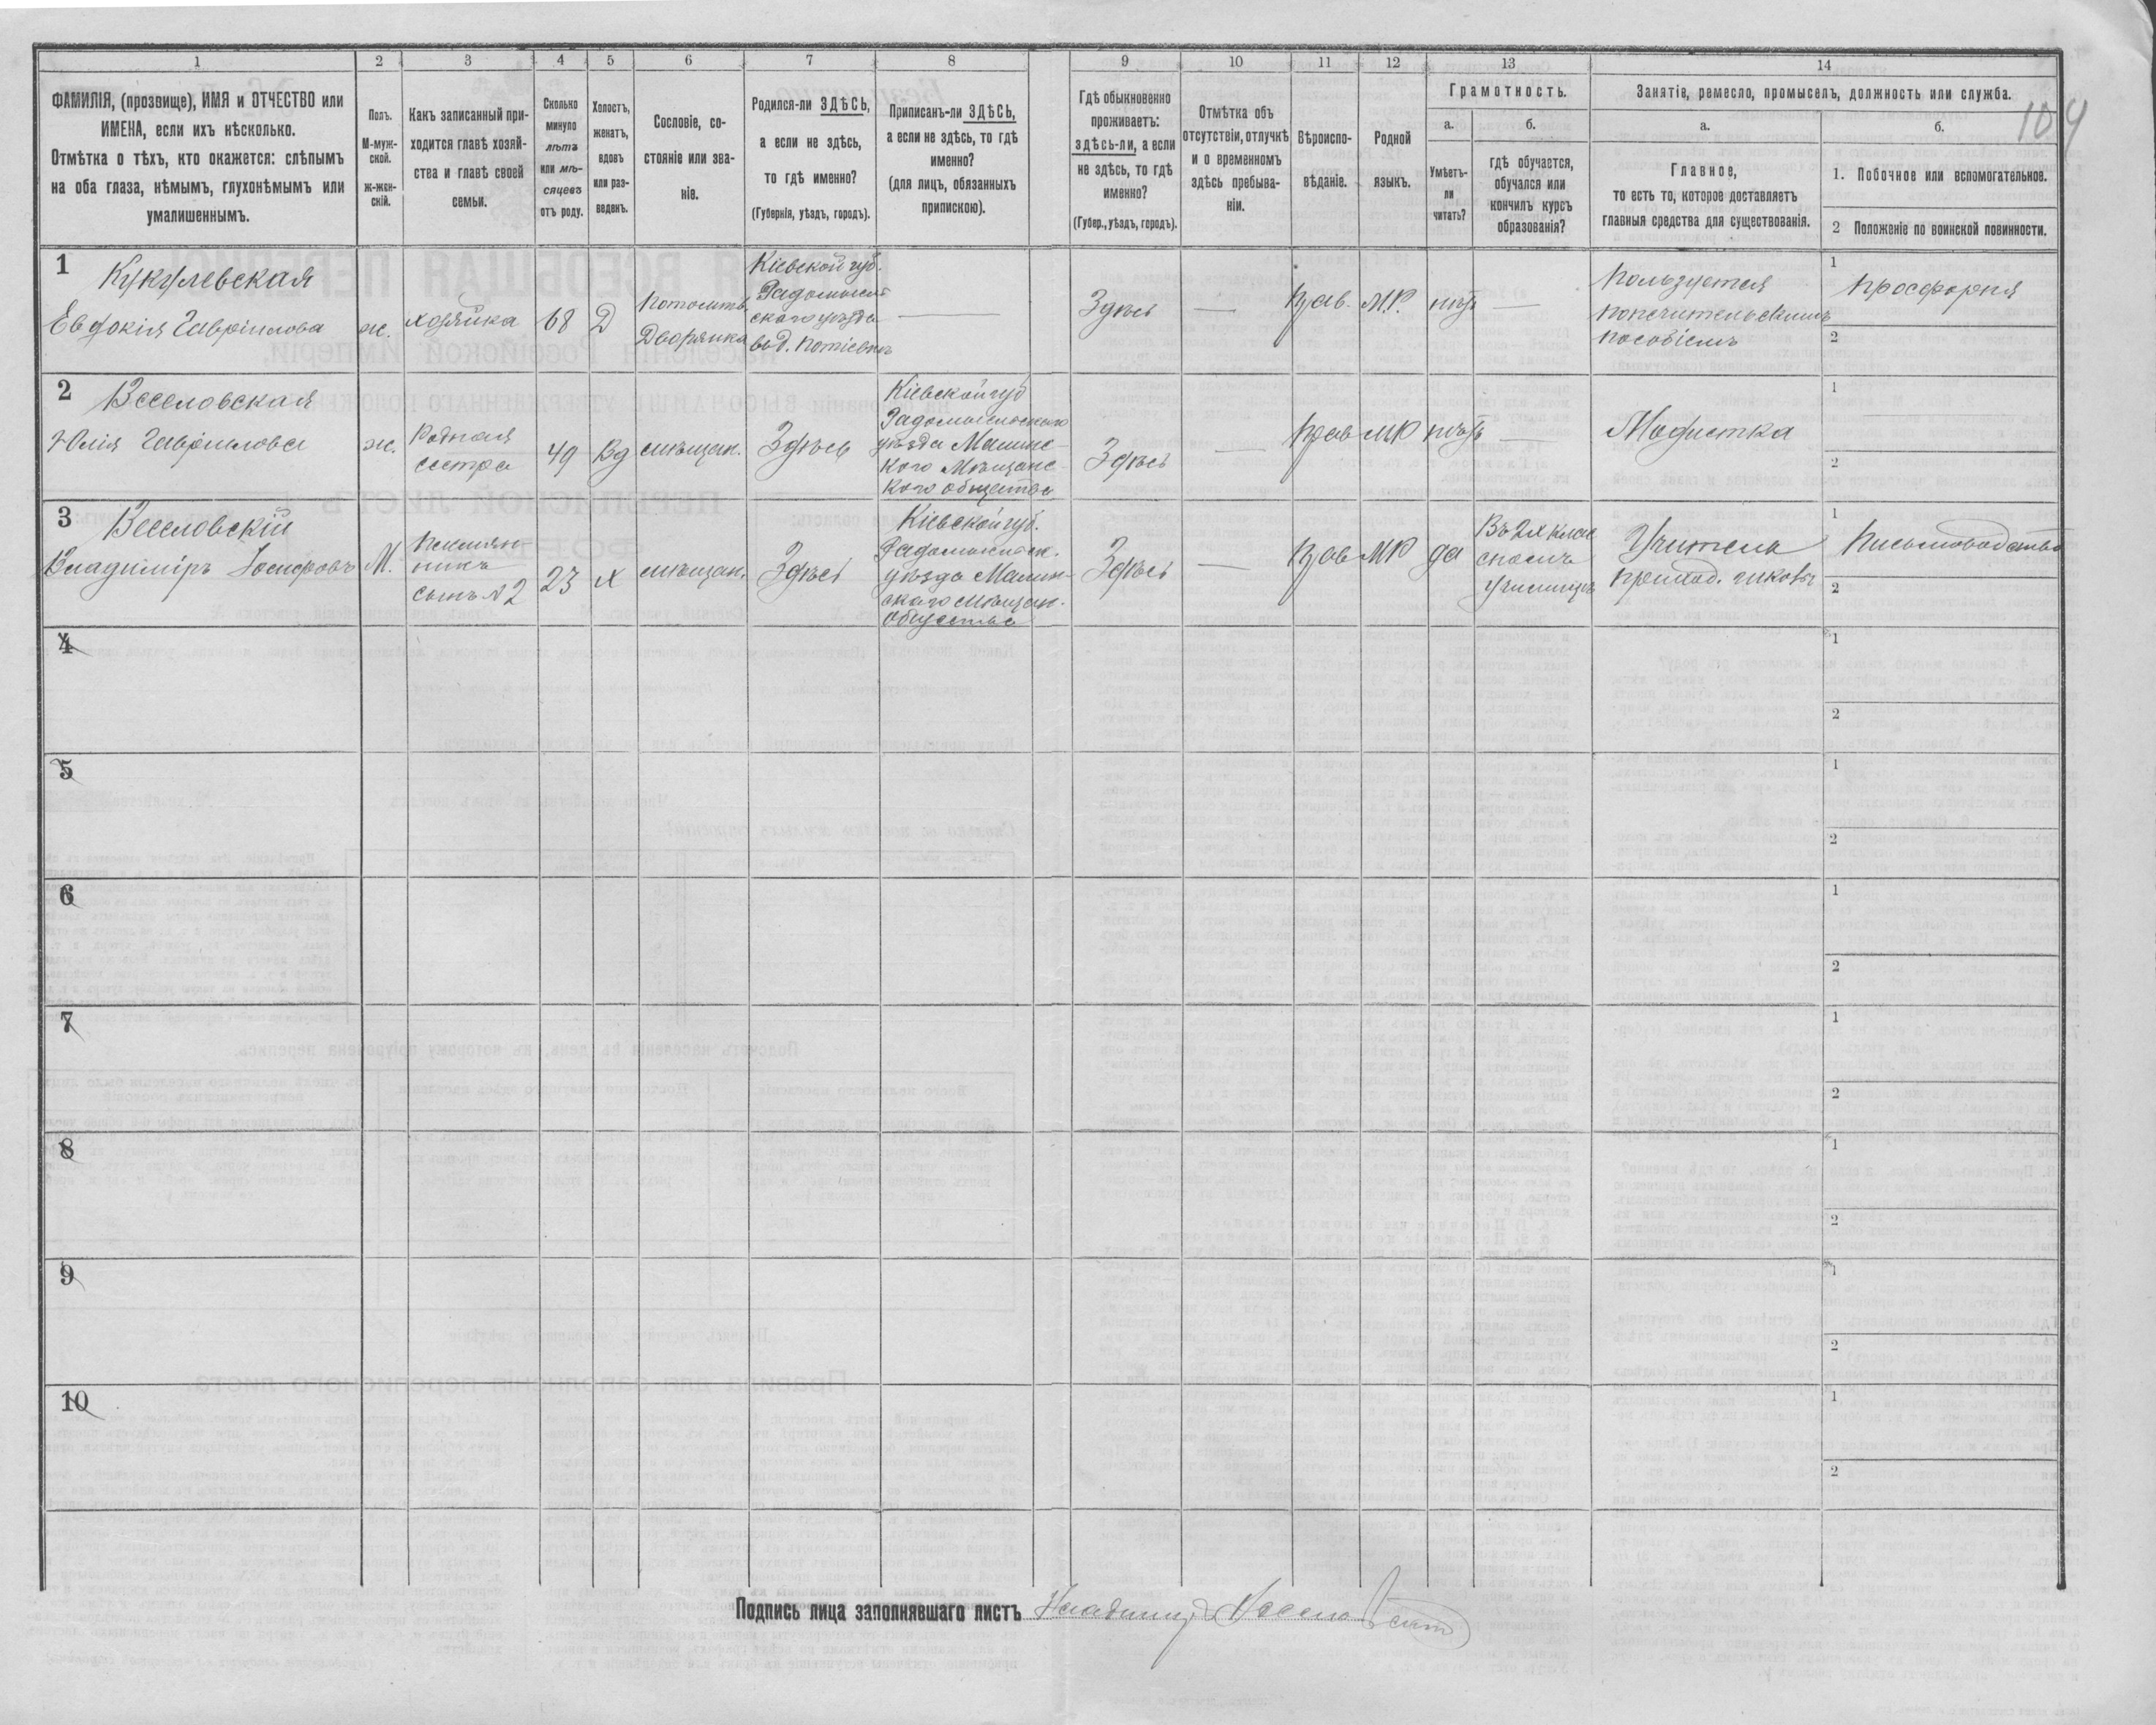 1 2 3 4 5 6 7 8 9 10 11 12 13 14
ФАМИЛІЯ, (прозвище), ИМЯ и ОТЧЕСТВО или
ИМЕНА, если ихъ нѣсколько.
Отмѣтка о тѣхъ, кто окажется: слѣпымъ
на оба глаза, нѣмымъ, глухонѣмымъ или
умалишеннымъ.
Полъ.
М-муж-
ской.
ж-жен-
скій.
Какъ записанный при-
ходится главѣ хозяй-
ства и главѣ своей
семьи.
Сколько
минуло
лѣтъ
или мѣ-
сяцевъ
отъ роду.
Холостъ,
женатъ,
вдовъ
или раз-
веденъ.
Сословіе, со-
стояніе или зва-
ніе.
Родился-ли ЗДѢСЬ,
а если не здѣсь,
то гдѣ именно?
(Губернія, уѣздъ, городъ).
Приписанъ-ли ЗДѢСЬ,
а если не здѣсь, то гдѣ
именно?
(для лицъ, обязанныхъ
припискою).
Гдѣ обыкновенно
проживаетъ:
здѣсь-ли, а если
не здѣсь, то гдѣ
именно?
(Губер., уѣздъ, городъ).
Отмѣтка объ
отсутствіи, отлучкѣ
и о временномъ
здѣсь пребыва-
ніи.
Вѣроиспо-
вѣданіе.
Родной
языкъ.
Грамотность.
а.
Умѣетъ-
ли
читать?
б.
гдѣ обучается,
обучался или
кончилъ курсъ
образованія?
Занятіе, ремесло, промыселъ, должность или служба.
104
а.
Главное,
то есть то, которое доставляетъ
главныя средства для существованія.
б.
1. Побочное или вспомогательное.
2 Положеніе по воинской повинности.
1
Кукулевская
Евдокія Гавріилова
ж.
хозяйка
68
Д
Потомств.
Дворянка
Кіевской губ.
Радомысль
скаго уѣзда
въ д. Потіевкѣ
Здѣсь
Прав.
М.Р.
нѣтъ
Пользуется
попечительскимъ
пособіемъ
1
просфорня
2
2
Веселовская
Юлія Гавріиловна
ж.
Родная
сестра
49
Вд
мѣщан.
Здѣсь
Кіевской губ
Радомысльскаго
уѣзда Малинс-
каго Мѣщанс-
каго общества
Здѣсь
Прав
МР
нѣтъ
Модистка
1
2
3
Веселовскій
Владиміръ Іосифовъ
М.
племян-
никъ
сынъ №2
23
х
мѣщан.
Здѣсь
Кіевской губ.
Радомысльск.
уѣзда Малин-
скаго мѣщан.
общества
Здѣсь
Прав
МР
да
Въ 2х клас
сномъ
училищѣ
Учитель
приход. школы
1
Письмоводство
2
4
1
2
5
1
2
6
1
2
7
1
2
8
1
2
9
1
2
10
1
2
Подпись лица заполнявшаго листъ Владиміръ Веселовскій